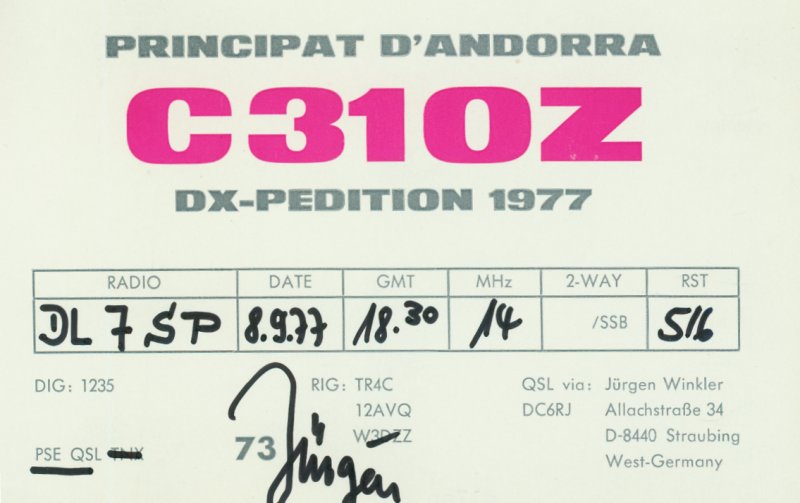 PRINCIPAT D'ANDORRA
C31OZ
DX-PEDITION 1977
RADIO DATE GMT MHz 2-WAY RST
DL7SP 8.9.77 18.30 14 /SSB 5/6
DIG: 1235 RIG: TR4C QSL via: Jürgen Winkler
12AVQ DC6RJ Allachstraße 34
W3DZZ D-8440 Straubing
PSE QSL TNX 73 Jürgen West-Germany